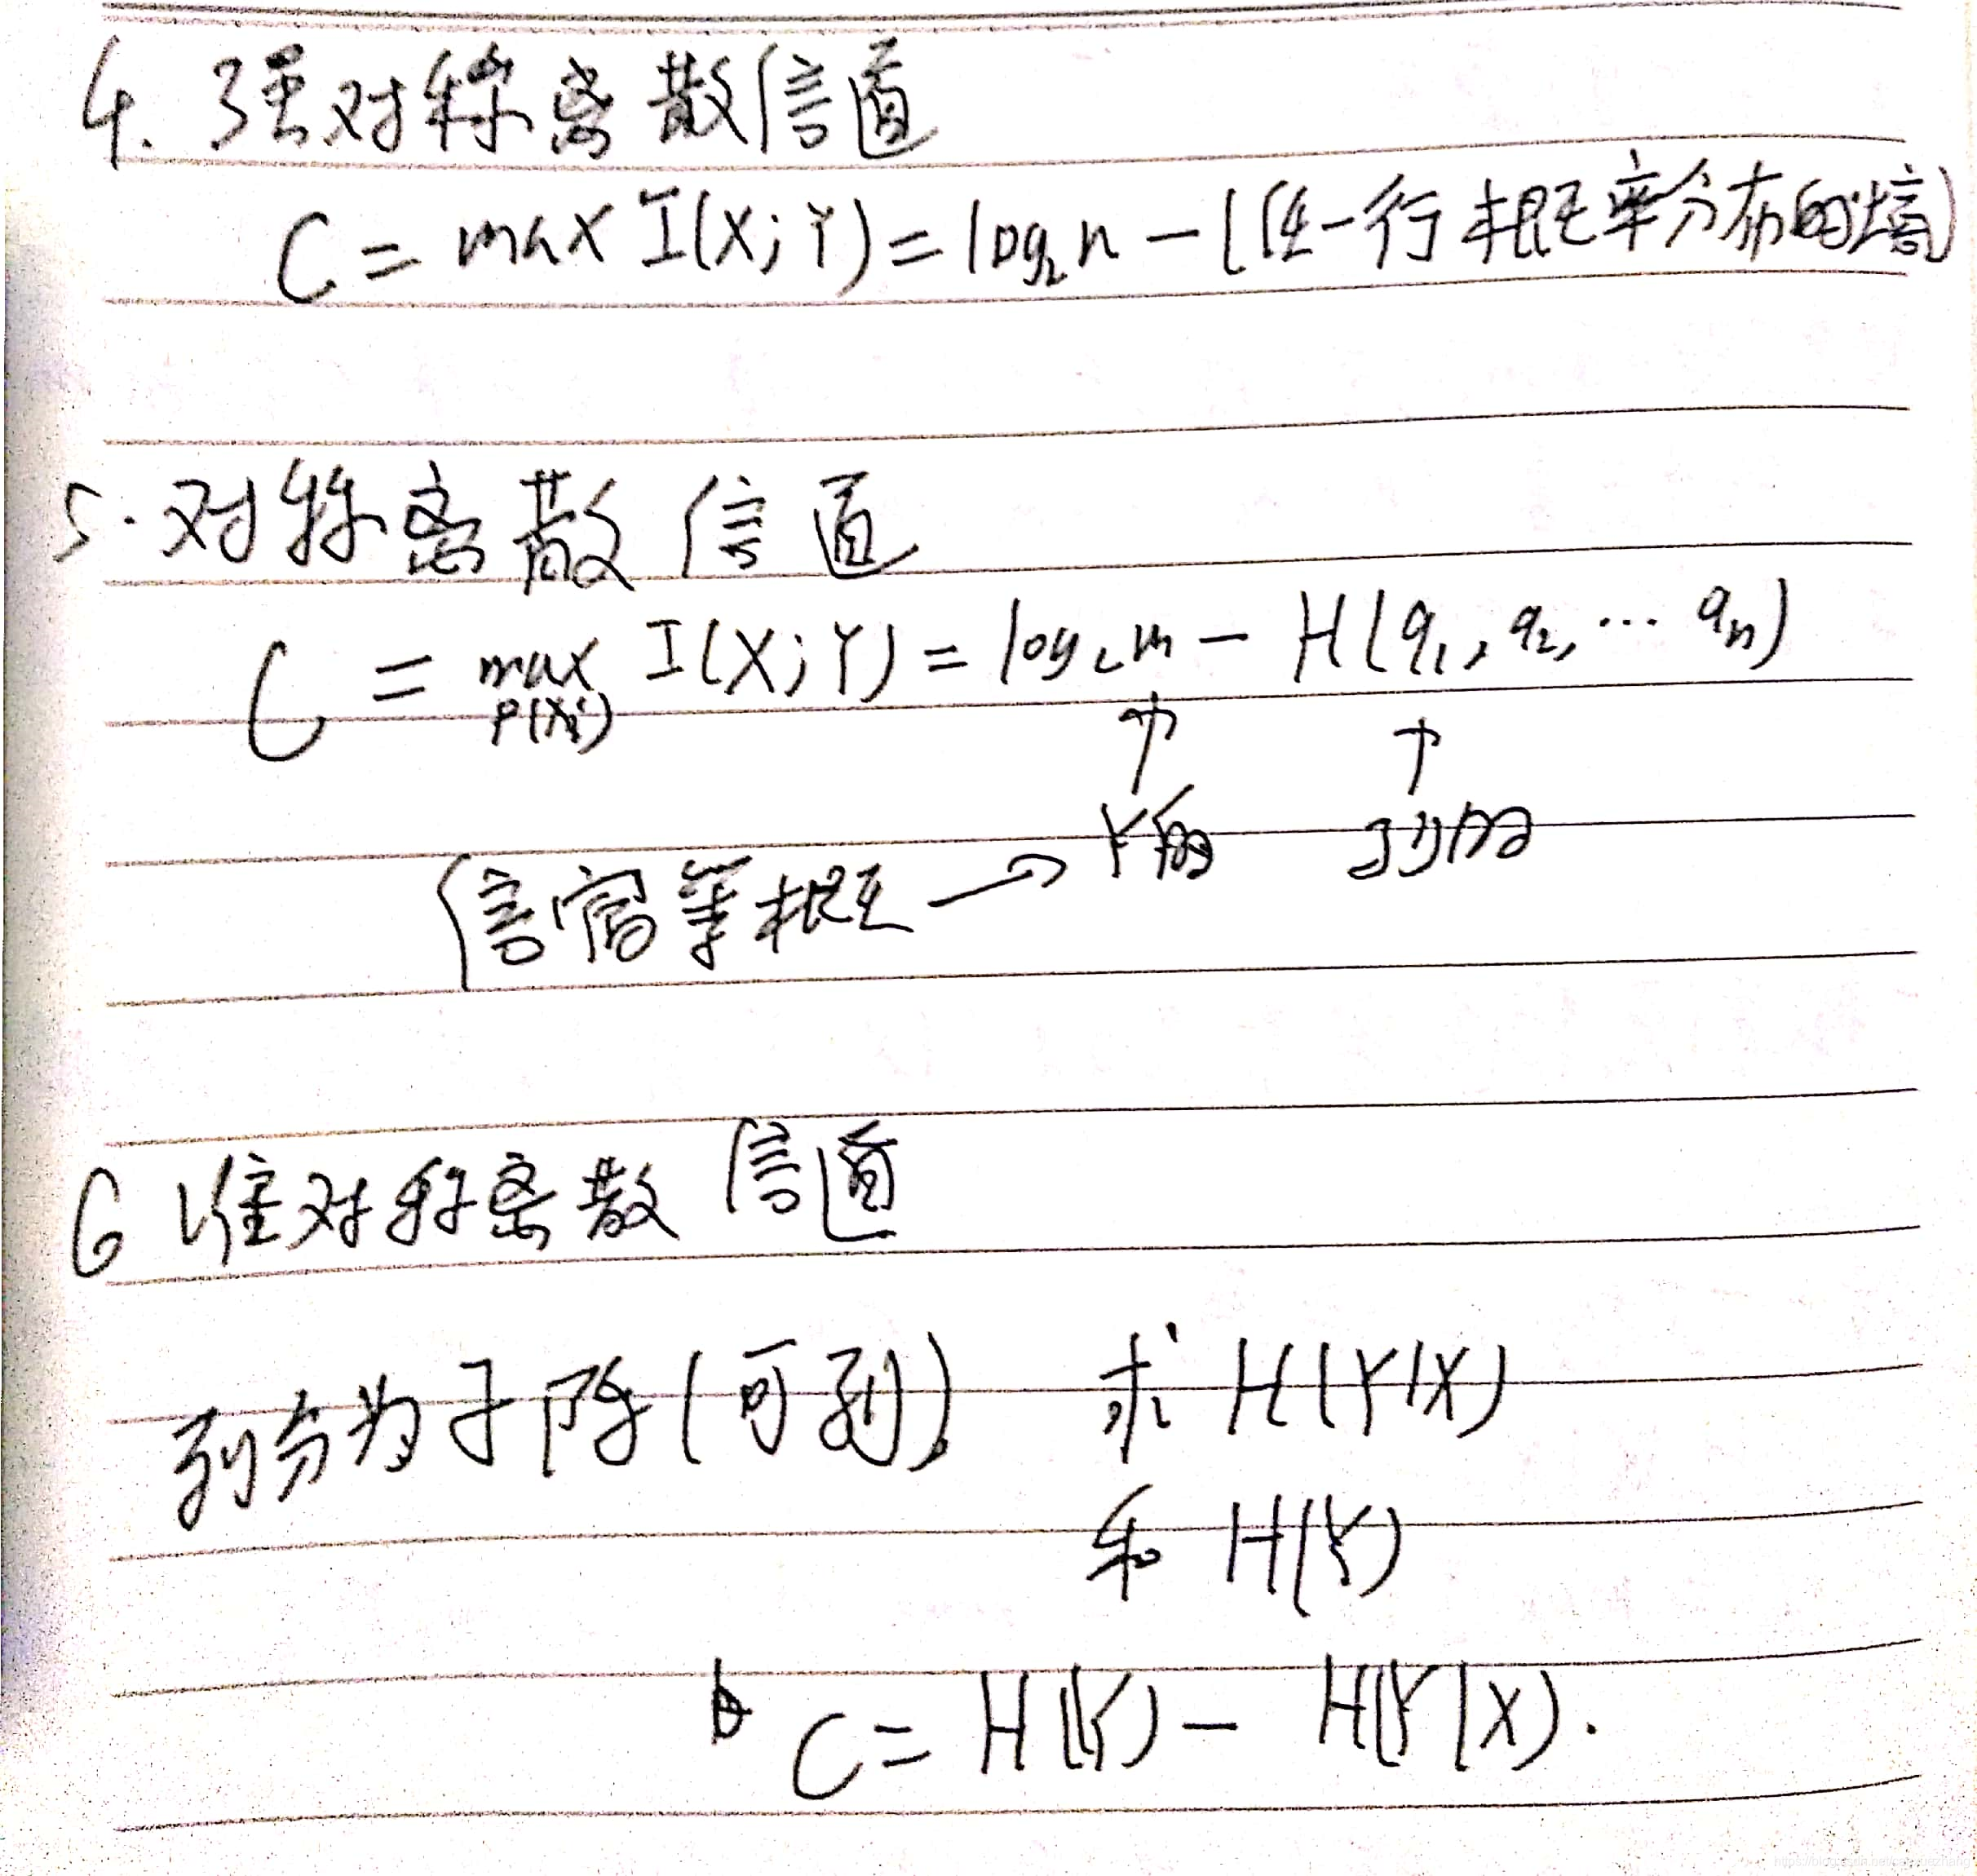 4. 强对称离散信道
C = max I(X;Y) = log₂n - (任一行概率分布的熵)
5. 对称离散信道
C = max I(X;Y) = log₂m - H(q₁, q₂, … qₙ)
P(Xi)
↑ ↑
Y的 列的
信宿等概 → 
6 准对称离散信道
列分为子阵(可列) 求 H(Y|X)
和 H(Y)
C = H(Y) - H(Y|X).